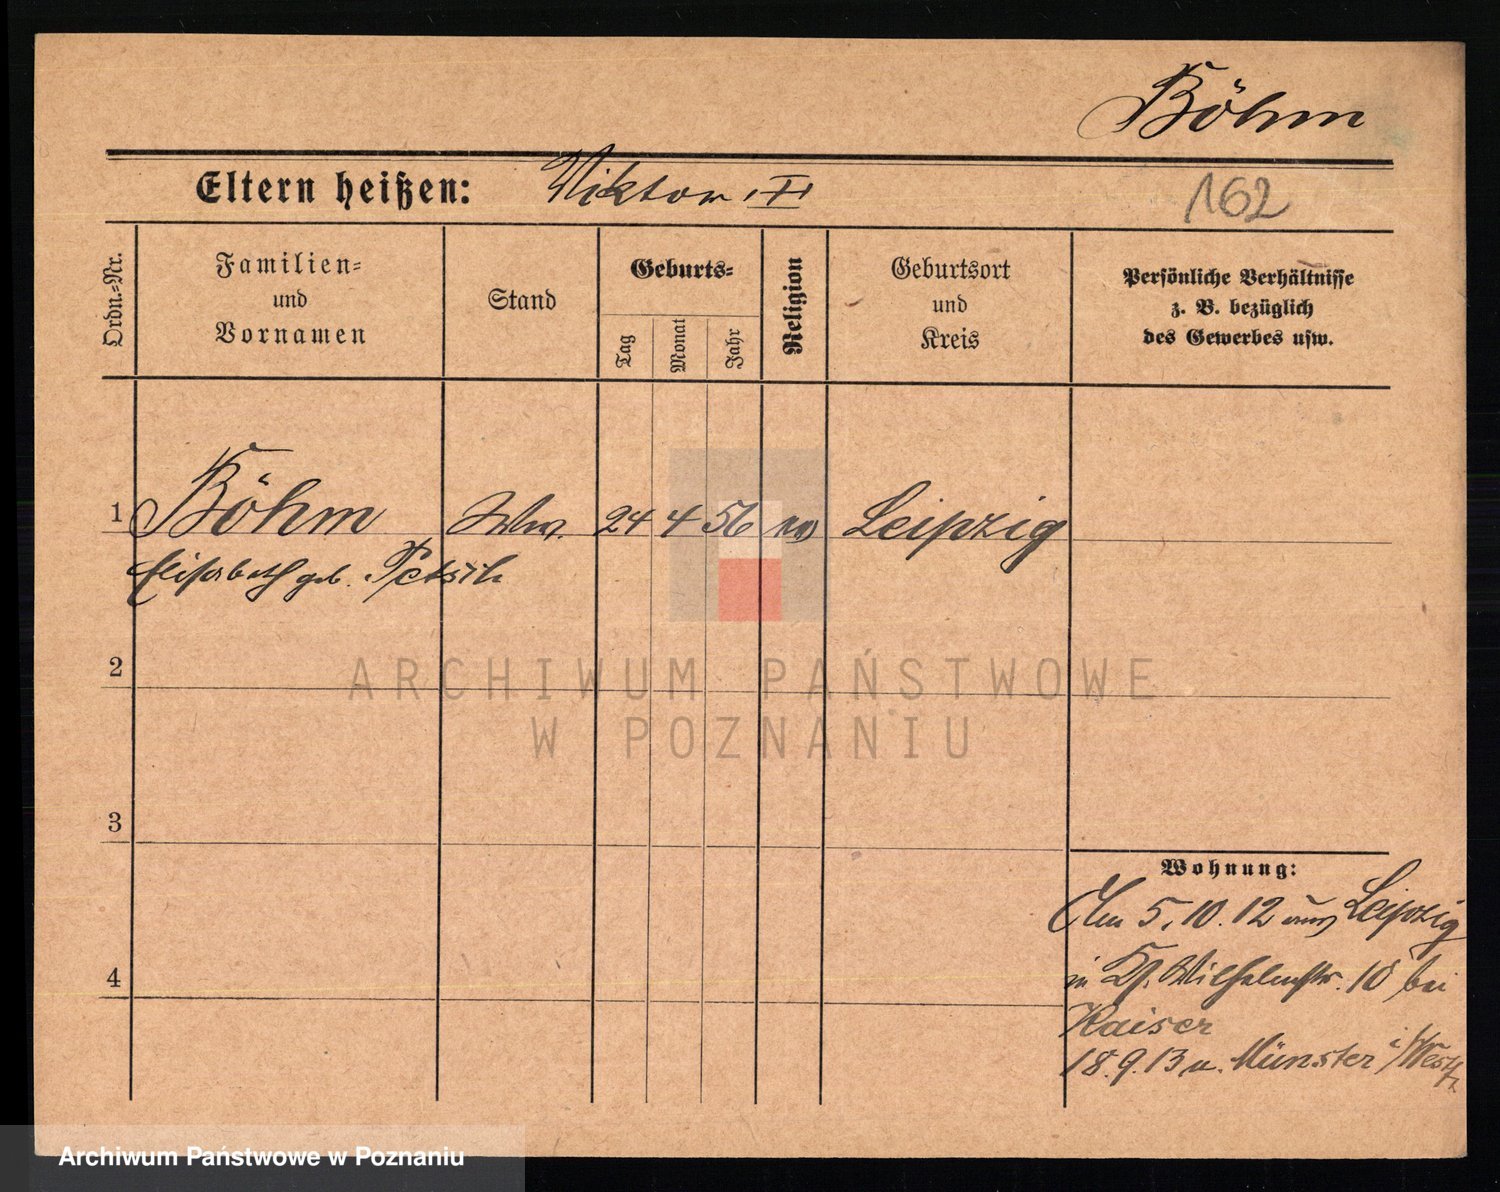 Böhm
Eltern heißen: Viktor, II
162
Ordn.-Nr.
Familien-
und
Vornamen
Stand
Geburts-
Tag
Monat
Jahr
Religion
Geburtsort
und
Kreis
Persönliche Verhältnisse
z. B. bezüglich
des Gewerbes usw.
1 Böhm Wwe. 24 4 56 ev Leipzig
Elisabeth geb.
2
ARCHIWUM PAŃSTWOWE
W POZNANIU
3
Wohnung:
Am 5.10.12 aus Leipzig
4
in Wilhelmstr. 10 bei
Kaiser
18.9.13 n. Münster i/Westf.
Archiwum Państwowe w Poznaniu